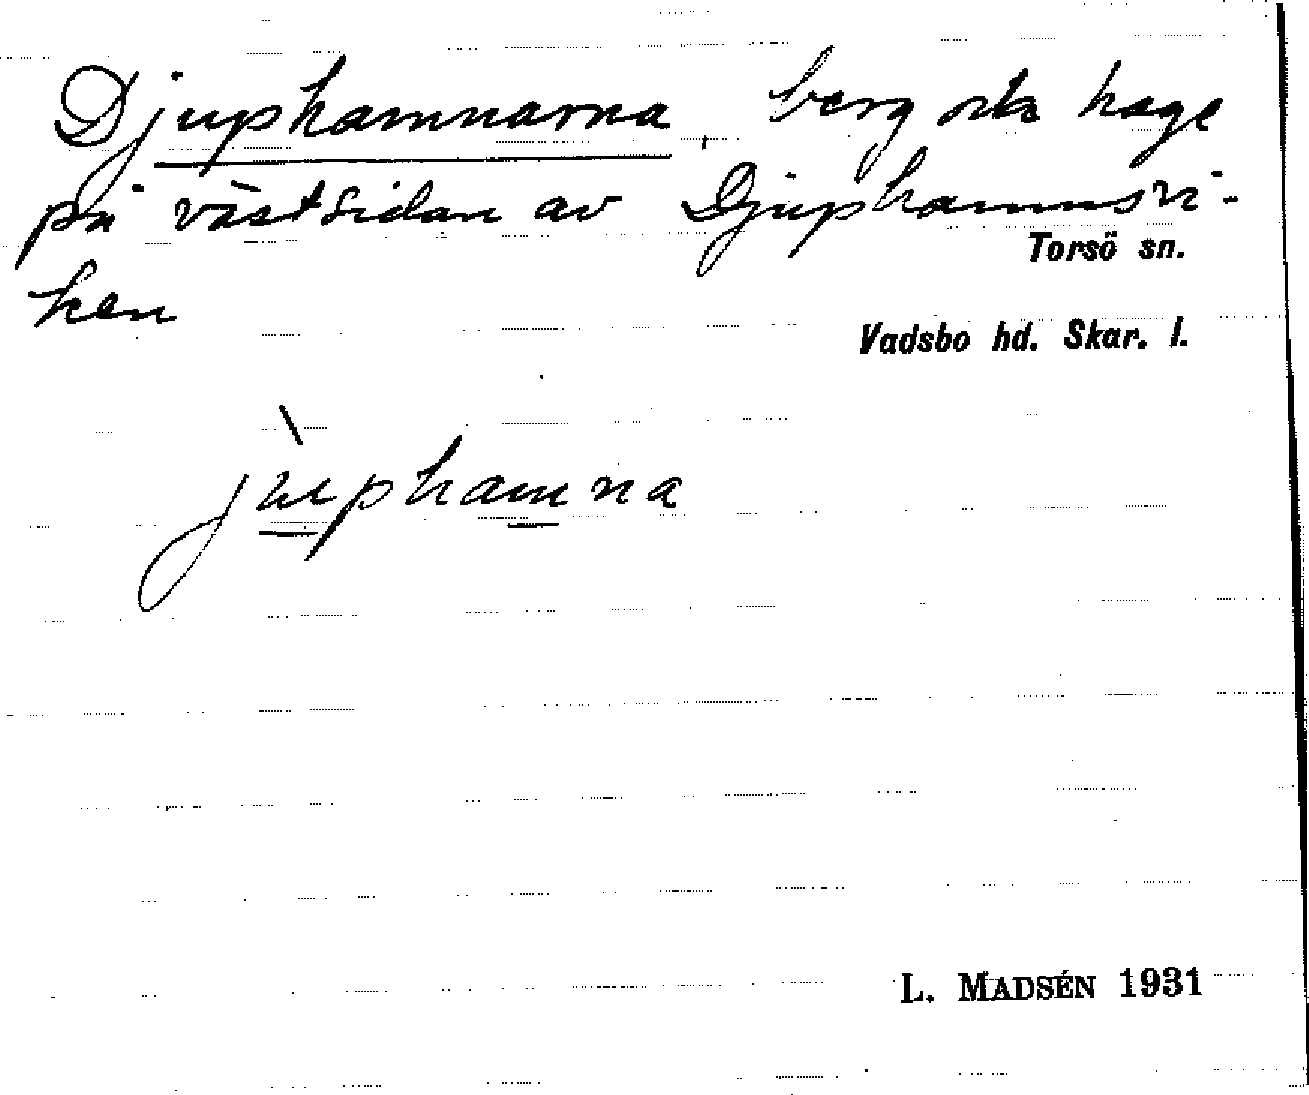 Djuphamnarna, berg och hage
på västsidan av Djuphamnsvi-
Torsö sn.
ken
Vadsbo hd. Skar. l.
jùphamna
L. MADSÉN 1931